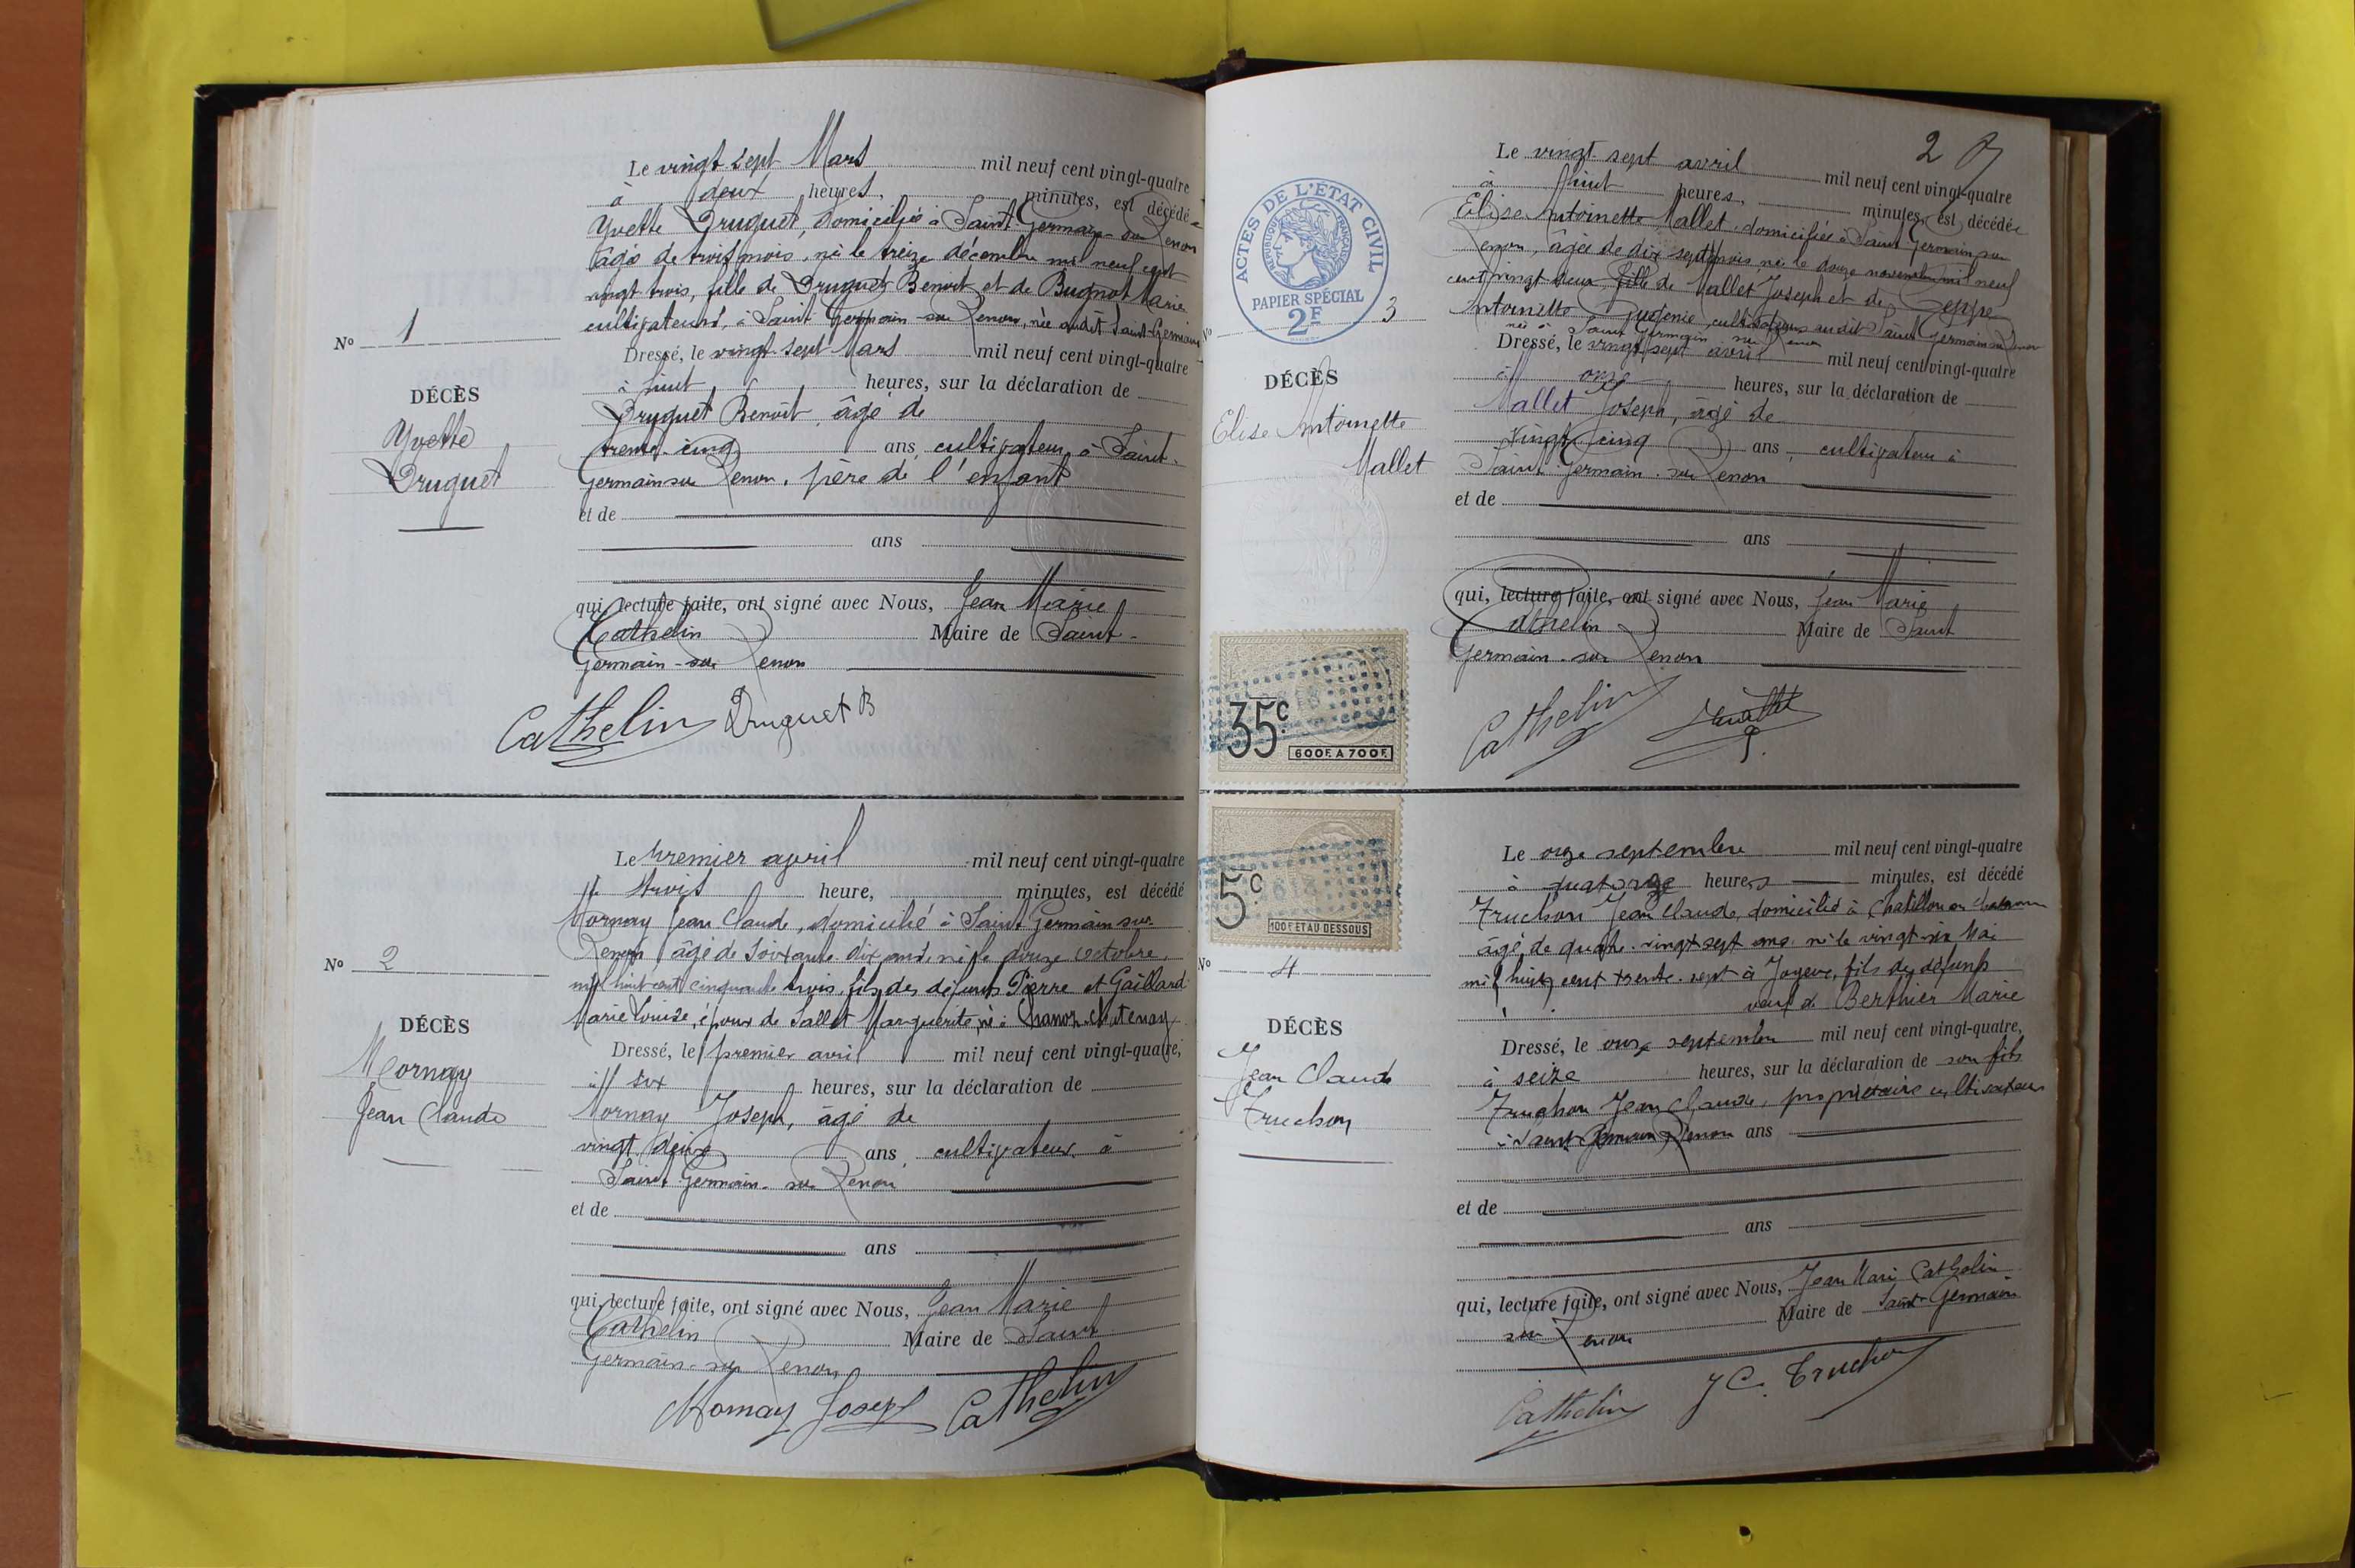 Le vingt-sept Mars mil neuf cent vingt-quatre
à deux heures, minutes, est décédée
Yvette Druguet, domiciliée à Saint Germain-sur Renon
âgé de trois mois, née le treize décembre mil neuf cent
vingt trois, fille de Druguet Benoit et de Bugnot Marie
cultivateurs, à Saint Germain-sur Renon, née audit Saint-Germain
Dressé, le vingt-sept Mars mil neuf cent vingt-quatre
à huit heures, sur la déclaration de
Druguet Benoît, âgé de
trente-cinq ans, cultivateur à Saint-
Germain sur Renon, père de l'enfant
et de
ans
qui, lecture faite, ont signé avec Nous, Jean Marie
Cathelin Maire de Saint-
Germain-sur Renon
Cathelin Druguet B
N° 1
DÉCÈS
Yvette
Druguet
Le premier avril mil neuf cent vingt-quatre
à trois heure, minutes, est décédé
Mornay Jean Claude, domicilié à Saint Germain sur
Renon âgé de soixante-dix ans, né le douze octobre
mil huit cent cinquante trois, fils des défunts Pierre et Gaillard
Marie Louise, époux de Sallet Marguerite, né à Chanoz-Châtenay
Dressé, le premier avril mil neuf cent vingt-quatre,
à six heures, sur la déclaration de
Mornay Joseph, âgé de
vingt deux ans, cultivateur à
Saint Germain-sur Renon
et de
ans
qui, lecture faite, ont signé avec Nous, Jean Marie
Cathelin Maire de Saint
Germain-sur Renon
Mornay Joseph Cathelin
N° 2
DÉCÈS
Mornay
Jean Claude
2
Le vingt-sept avril mil neuf cent vingt-quatre
à huit heures, minutes, est décédée
Elise Antoinette Mallet, domiciliée à Saint Germain sur
Renon, âgée de dix sept mois, née le douze novembre mil neuf
cent vingt deux, fille de Mallet Joseph et de
Antoinette Eugénie, cultivateurs audit Saint Germain sur Renon
née à Saint Germain sur Renon
Dressé, le vingt-sept avril mil neuf cent vingt-quatre
à onze heures, sur la déclaration de
Mallet Joseph, âgé de
vingt-cinq ans, cultivateur à
Saint Germain-sur Renon
et de
ans
qui, lecture faite, ont signé avec Nous, Jean Marie
Cathelin Maire de Saint
Germain-sur Renon
Cathelin
ACTES DE L'ÉTAT CIVIL
RÉPUBLIQUE FRANÇAISE
PAPIER SPÉCIAL
2F
N° 3
DÉCÈS
Elise Antoinette
Mallet
35c
600F. A 700F.
5c
100F ET AU DESSOUS
Le onze septembre mil neuf cent vingt-quatre
à quatorze heures minutes, est décédé
Truchon Jean Claude, domicilié à Chatillon en
âgé de quatre-vingt sept ans né le vingt six Mai
mil huit cent trente-sept à Joyeux, fils de défunts
veuf de Berthier Marie
Dressé, le onze septembre mil neuf cent vingt-quatre,
à seize heures, sur la déclaration de son fils
Truchon Jean Claude, propriétaire cultivateur
à Saint Germain Renon ans
et de
ans
qui, lecture faite, ont signé avec Nous, Jean Marie Cathelin
Maire de Saint-Germain
sur Renon
Cathelin J C. Truchon
N° 4
DÉCÈS
Jean Claude
Truchon